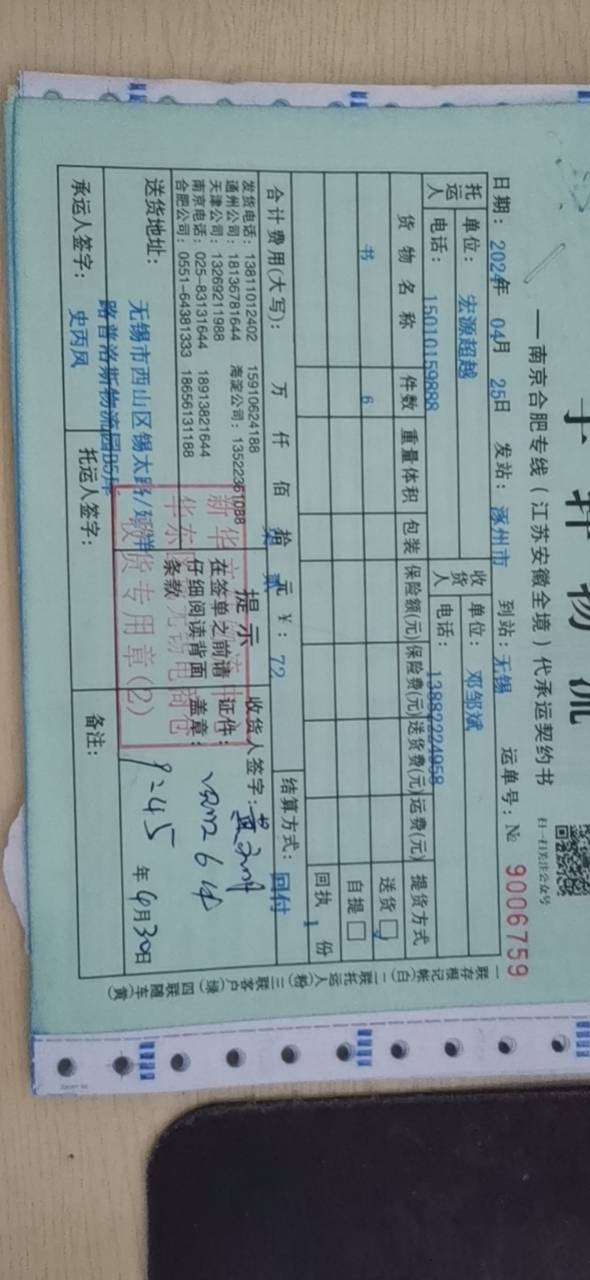 宇祥物流
——南京合肥专线（江苏安徽全境）代承运契约书
扫一扫关注公众号
日期：2024年 04月 25日 发站：涿州市 到站：无锡 运单号：№ 9006759
托运人 单位：宏源超越 收货人 单位：邓邹斌
电话：15010159888 电话：13882224958
货物名称 件数 重量体积 包装 保险额(元) 保险费(元) 送货费(元) 运费(元) 提货方式
书 6 送货 自提
回执 1 份
合计费用(大写)： 万 仟 佰 拾 元 ¥：72 结算方式：回付
发货电话：13811012402 15910624188
通州公司：18136781644 海淀公司：13522361088
天津公司：13269211988
南京电话：025-83131644 18913821644
合肥公司：0551-64381333 18656131188
提示
在签单之前请
仔细阅读背面
条款
收货人签字：
证件：
盖章：
6件
9:45
年 4月30日
送货地址：无锡市西山区锡太路/延祥
路普洛斯物流园B5库
新华
华东
收货专用章(2)
承运人签字：史丙风 托运人签字： 备注：
一联存根记帐(白) 二联托运人(粉) 三联客户(绿) 四联随车(黄)